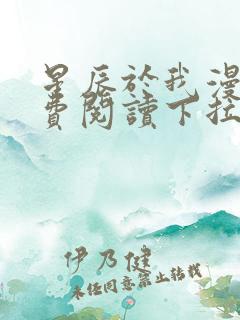 星辰於我漫
費閱讀下拉
伊乃健
未任同意禁止转载